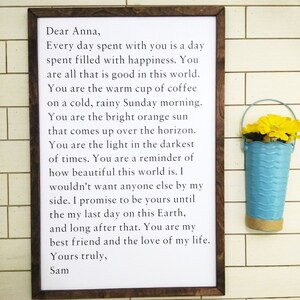 Dear Anna,
Every day spent with you is a day
spent filled with happiness. You
are all that is good in this world.
You are the warm cup of coffee
on a cold, rainy Sunday morning.
You are the bright orange sun
that comes up over the horizon.
You are the light in the darkest
of times. You are a reminder of
how beautiful this world is. I
wouldn't want anyone else by my
side. I promise to be yours until
the my last day on this Earth,
and long after that. You are my
best friend and the love of my life.
Yours truly,
Sam